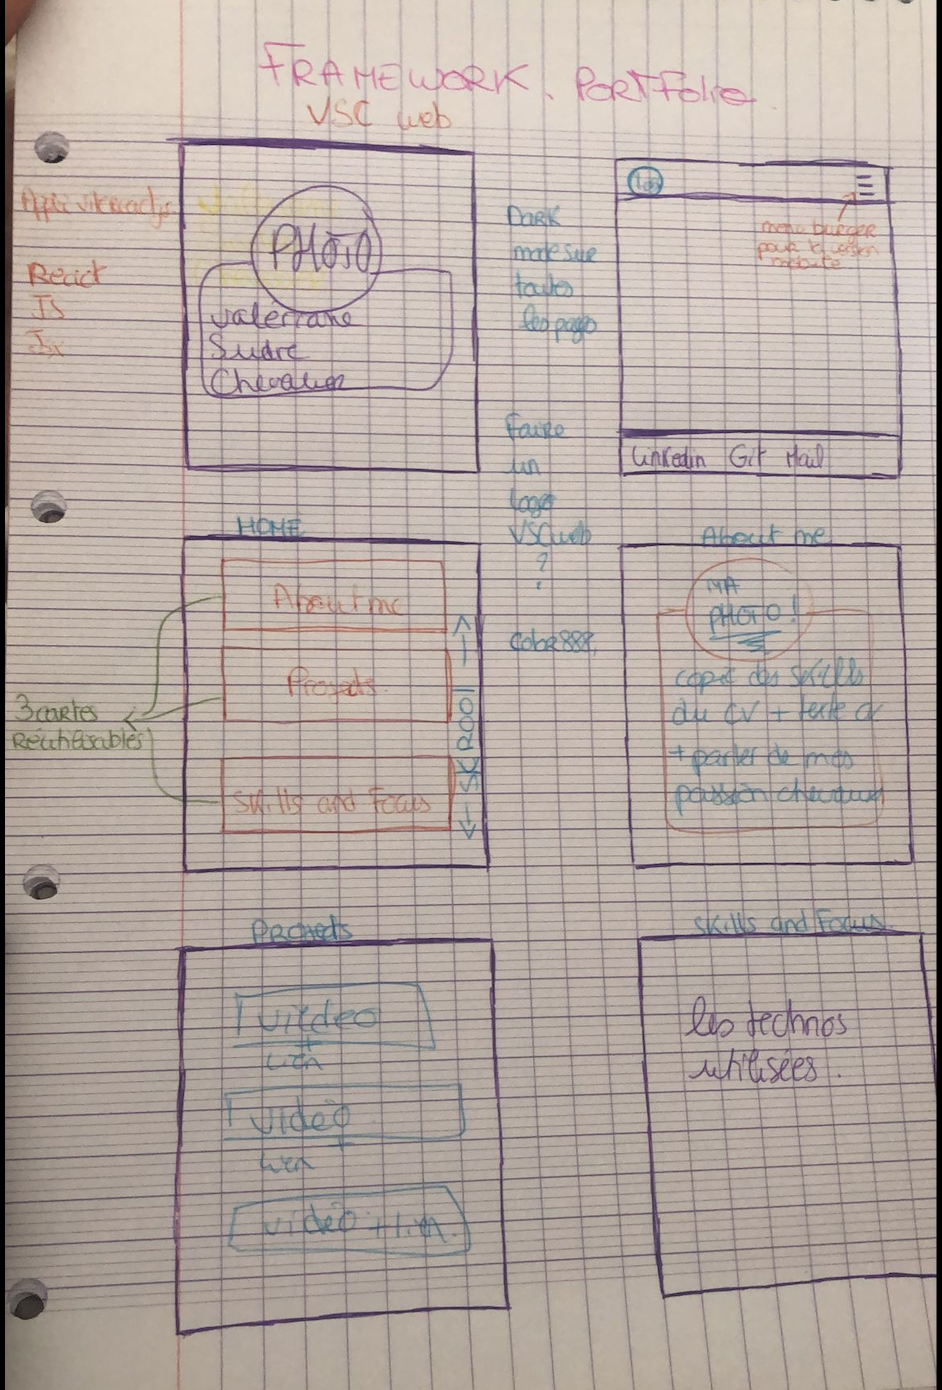 FRAMEWORK. PORTFOLIO
VSC web
Appli vitereactjs
React
JS
PHOTO
Valériane
Sudre
Chevalier
DARK
mode sur
toutes
les pages
menu burger
pour la version
mobile
Linkedin Git Mail
Faire
un
logo
VSCweb
?
HOME
About me
Projects
Skills and Focus
<- SCROOL ->
3 cartes
Réutilisables
About me
MA
PHOTO!
copié des skills
du CV + texte cv
+ parler de mes
passion chevaux
PROJECTS
video
+
lien
video
+
lien
video + lien
Skills and Focus
les technos
utilisées.